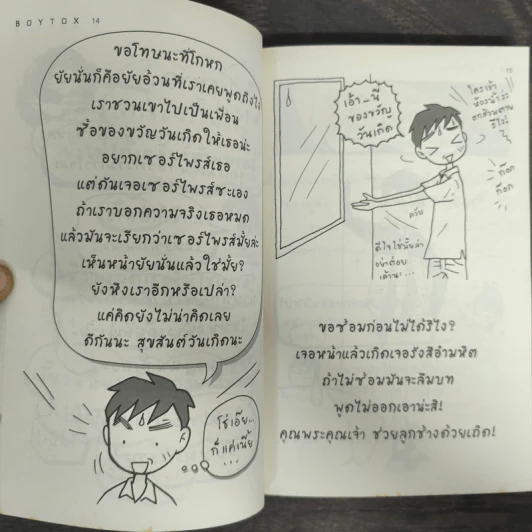 BOYTOX 14
ขอโทษนะที่โกหก
ยัยนั่นก็คือยัยอ้วนที่เราเคยพูดถึงไง
เราชวนเขาไปเป็นเพื่อน
ซื้อของขวัญวันเกิดให้เธอน่ะ
อยากเซอร์ไพรส์เธอ
แต่ดันเจอเซอร์ไพรส์ซะเอง
ถ้าเราบอกความจริงเธอหมด
แล้วมันจะเรียกว่าเซอร์ไพรส์มั้ยล่ะ
เห็นหน้ายัยนั่นแล้วใช่มั้ย?
ยังหึงเราอีกหรือเปล่า?
แค่คิดยังไม่น่าคิดเลย
ดีกันนะ สุขสันต์วันเกิดนะ
โธ่เอ๊ย...
ก็แค่เนี้ย
...
15
เอ้า_นี่
ของขวัญ
วันเกิด
ใครเข้า
ห้องน้ำวะ
ก๊อก
ก๊อก
ครับ
ดีใจใช่มั้ยล่า
อย่าต่อย
เค้านะ...
ขอซ้อมก่อนไม่ได้รึไง?
เจอหน้าแล้วเกิดเจอรังสีอำมหิต
ถ้าไม่ซ้อมมันจะลืมบท
พูดไม่ออกเอาน่ะสิ!
คุณพระคุณเจ้า ช่วยลูกช้างด้วยเถิด!